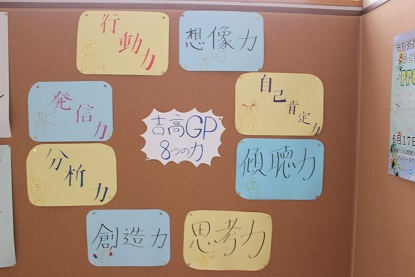 行動力
想像力
発信力
自己肯定力
吉高GP
8つの力
分析力
傾聴力
創造力
思考力
6月17日